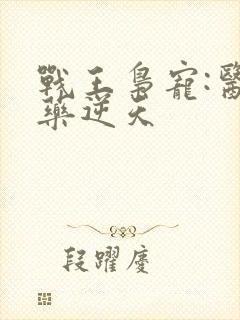 戰王梟寵:醫
藥逆天
段躍慶